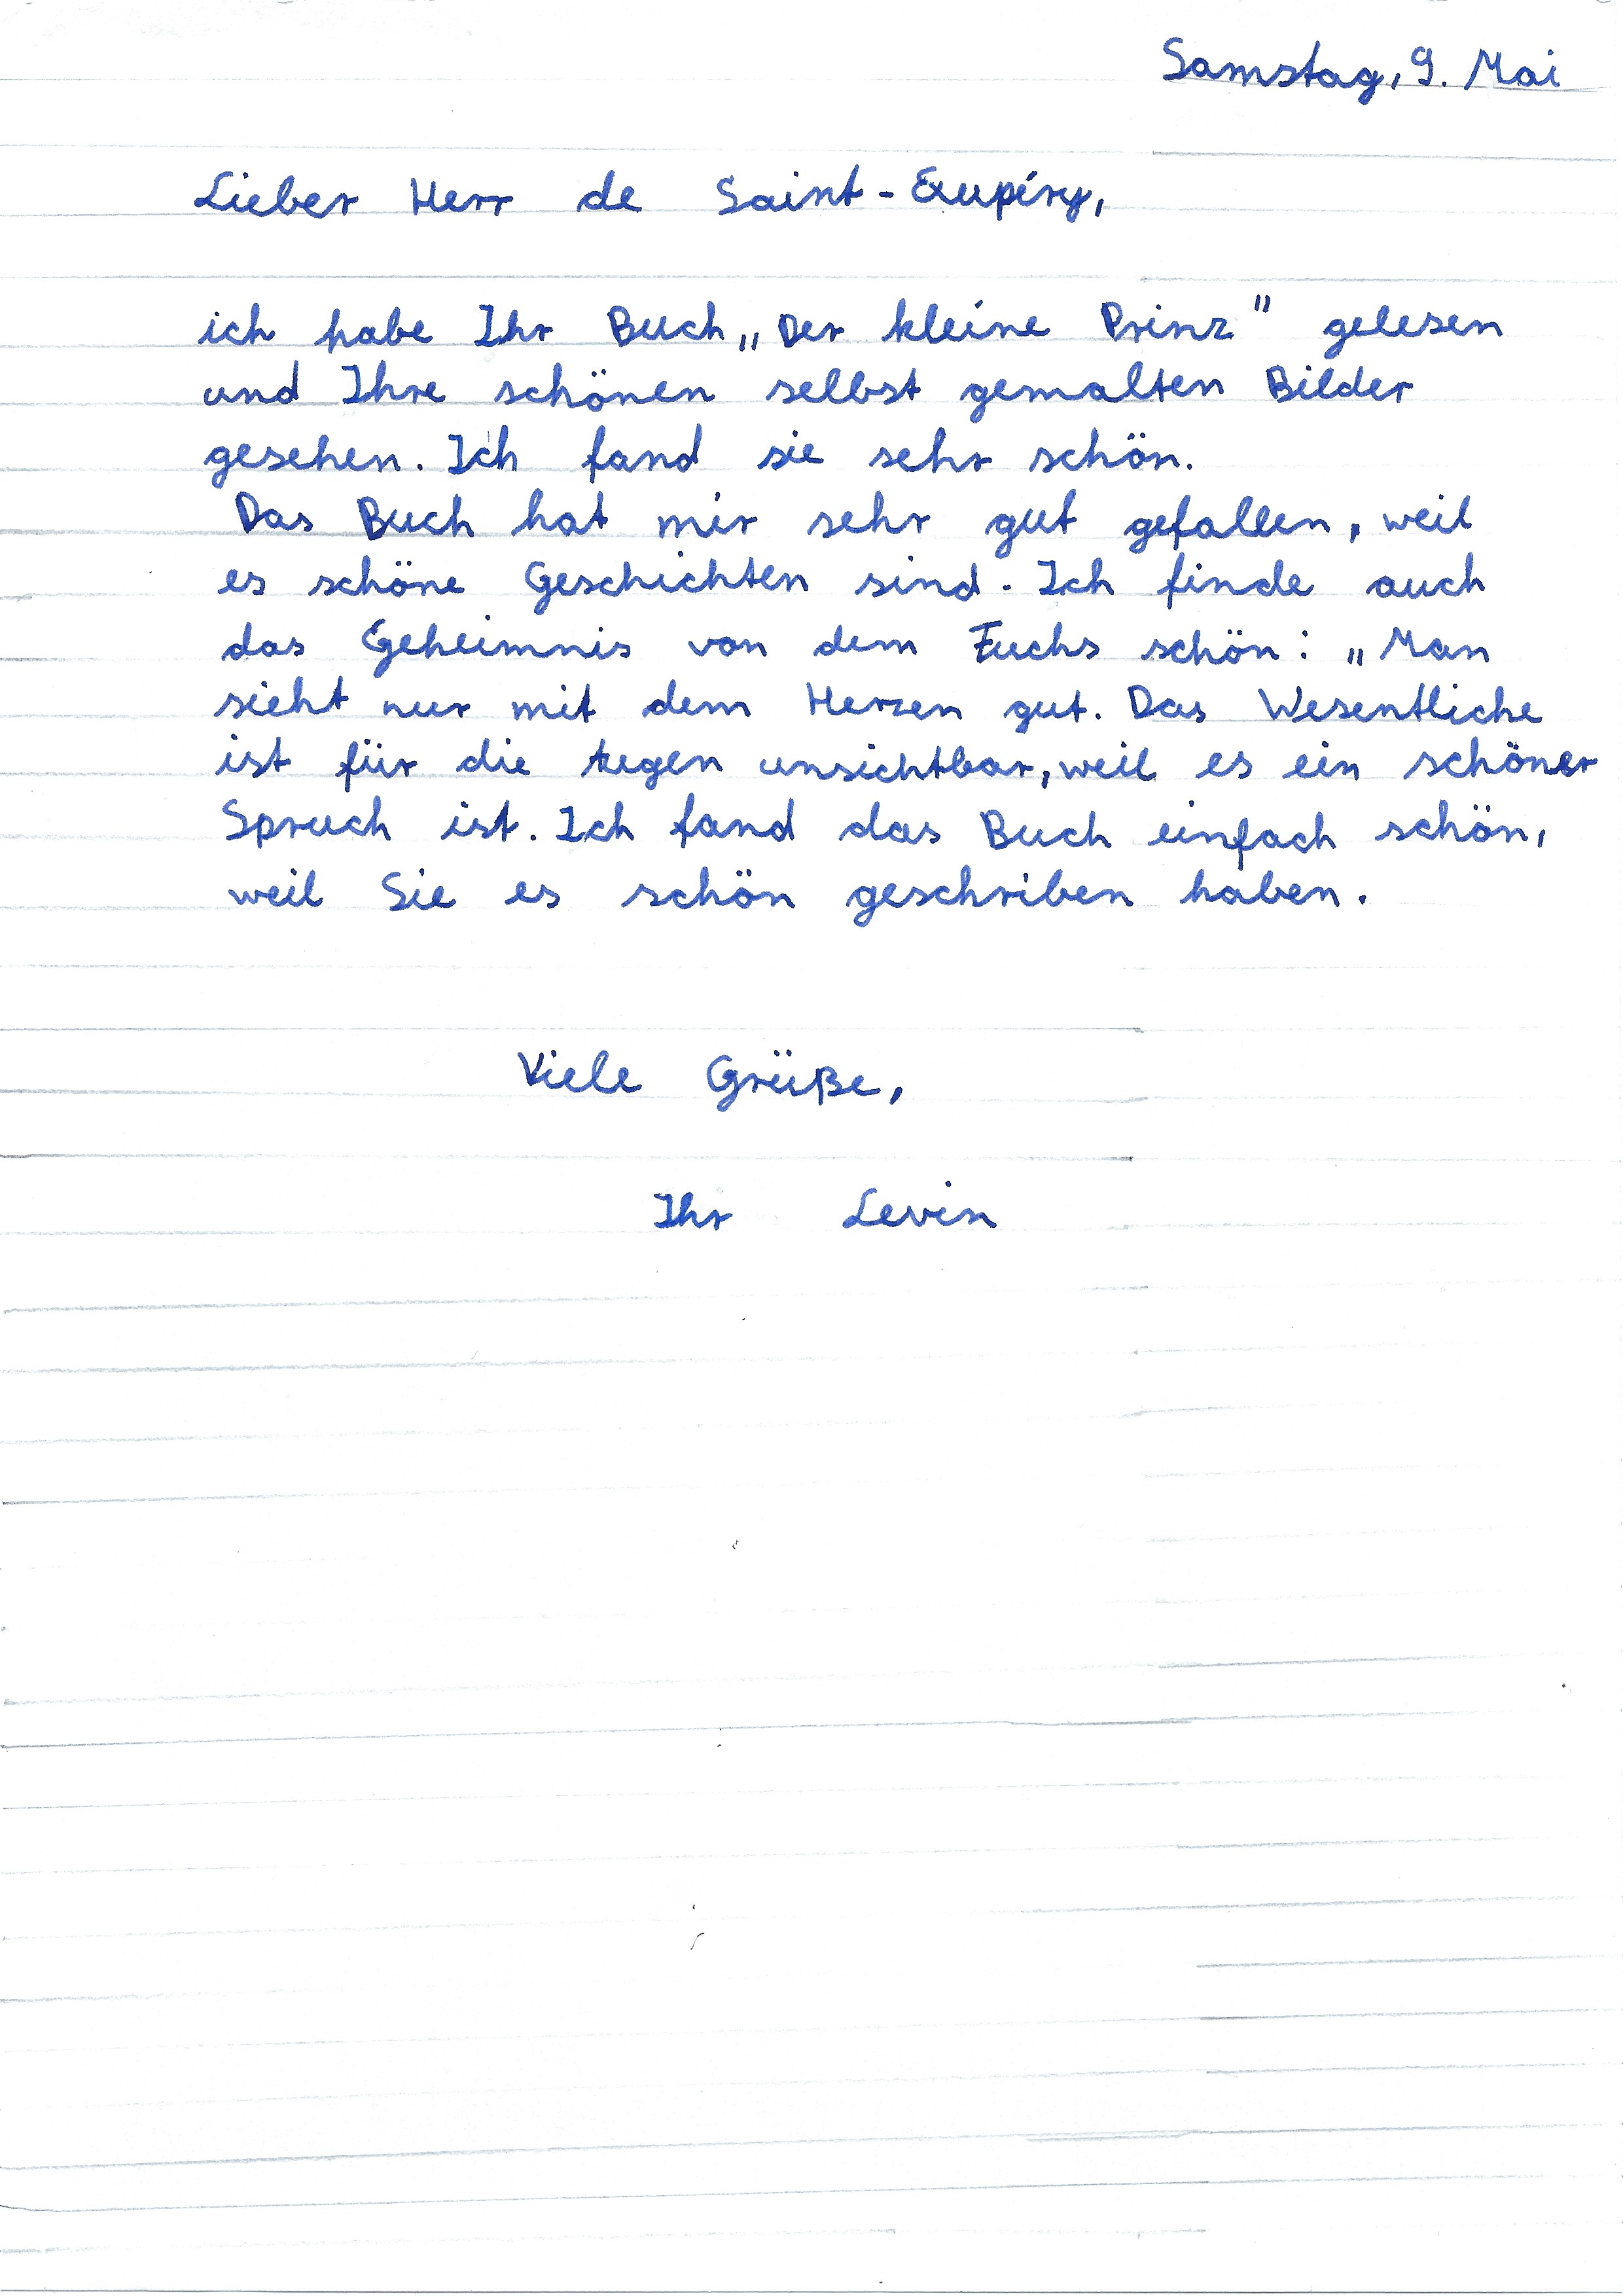 Samstag, 9. Mai
Lieber Herr de Saint-Exupéry,
ich habe Ihr Buch „Der kleine Prinz" gelesen
und Ihre schönen selbst gemalten Bilder
gesehen. Ich fand sie sehr schön.
Das Buch hat mir sehr gut gefallen, weil
es schöne Geschichten sind. Ich finde auch
das Geheimnis von dem Fuchs schön: „Man
sieht nur mit dem Herzen gut. Das Wesentliche
ist für die Augen unsichtbar, weil es ein schöner
Spruch ist. Ich fand das Buch einfach schön,
weil Sie es schön geschriben haben.
Viele Grüße,
Ihr Levin